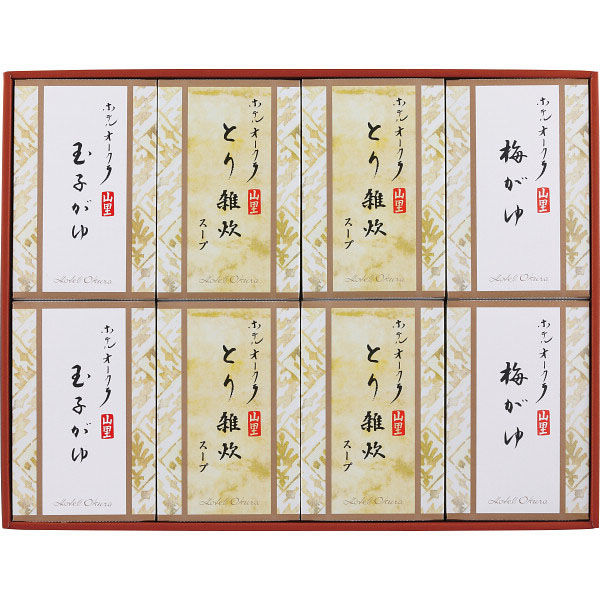 ホテルオークラ
山里
玉子がゆ
ホテルオークラ
山里
とり雑炊
スープ
Hotel Okura
ホテルオークラ
山里
とり雑炊
スープ
Hotel Okura
ホテルオークラ
山里
梅がゆ
Hotel Okura
Hotel Okura
ホテルオークラ
山里
玉子がゆ
Hotel Okura
ホテルオークラ
山里
とり雑炊
スープ
Hotel Okura
ホテルオークラ
山里
とり雑炊
スープ
Hotel Okura
ホテルオークラ
山里
梅がゆ
Hotel Okura